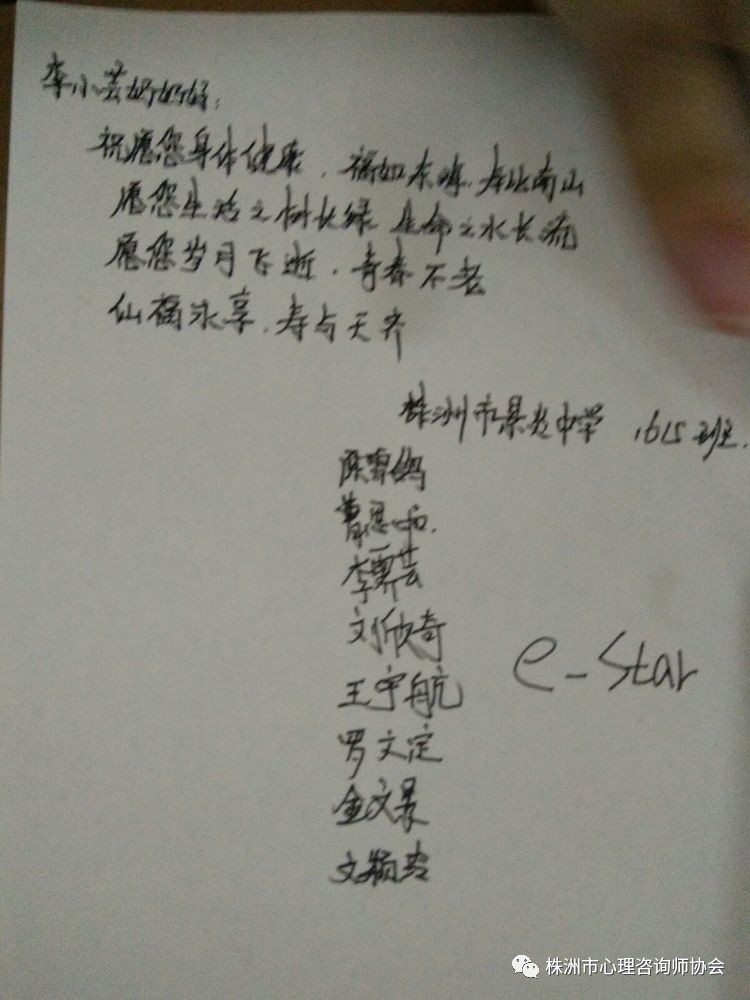 李小芸奶奶好：
祝愿您身体健康，福如东海，寿比南山
愿您生活之树长绿 生命之水长流
愿您岁月飞逝，青春不老
仙福永享，寿与天齐
株洲市景炎中学 1615班.
曹思
李芸
刘欣奇
王宇航
罗文定
金文景
文
e-Star
株洲市心理咨询师协会